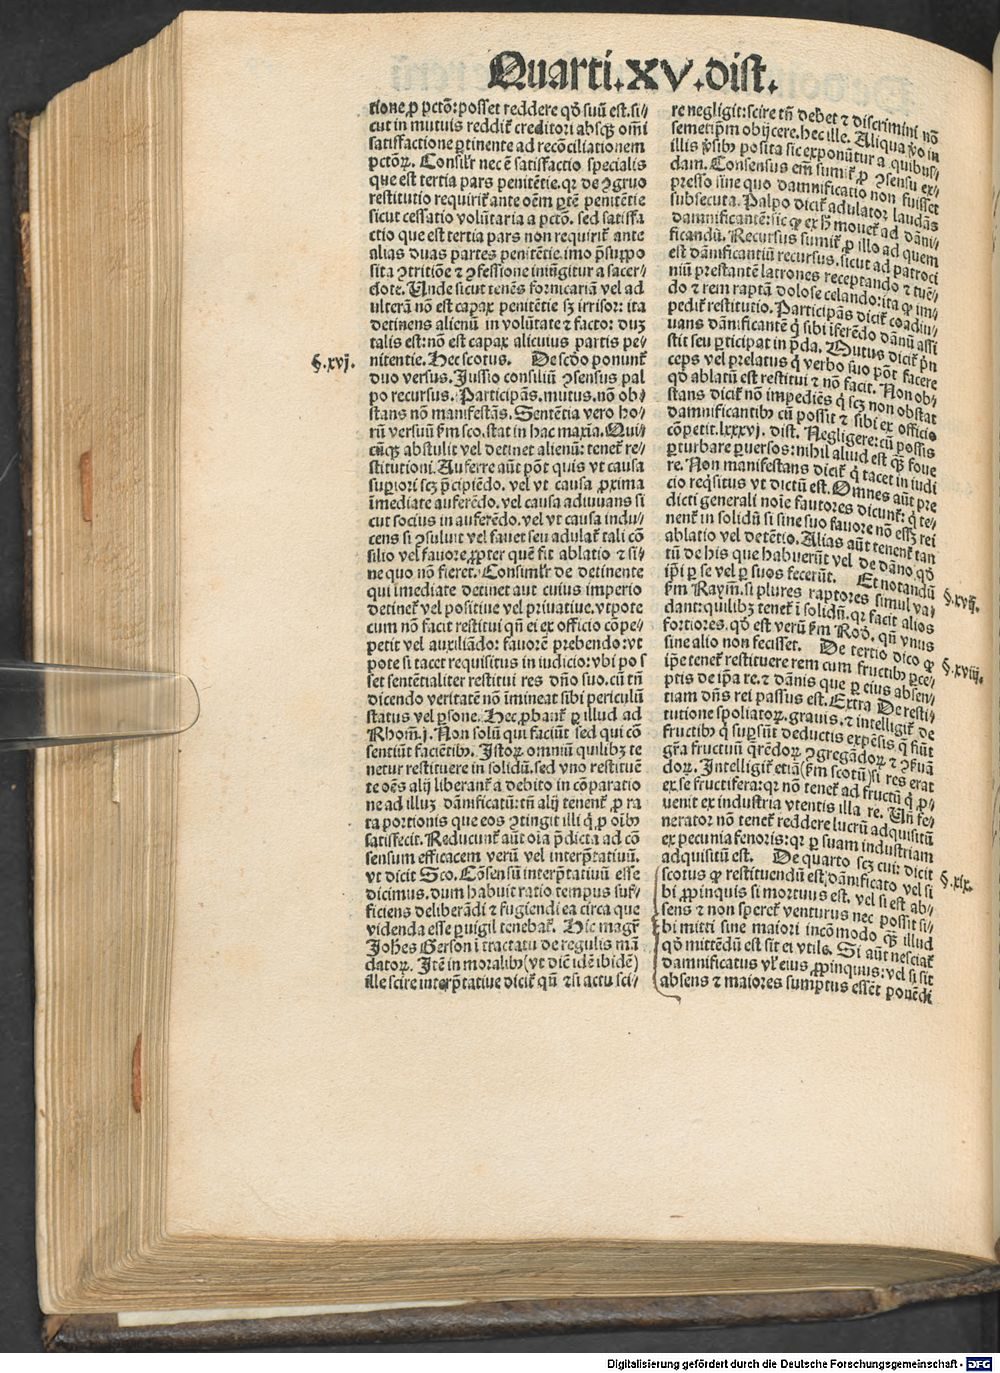 Quarti.XV.dist.
tione ꝓ pctō: posset reddere qd̓ suū est. si⸗
cut in mutuis reddit᷑ creditori absqꝫ om̄i
satisfactione ꝑtinente ad recōciliationem
pctōꝝ. Consilr̄ nec ē satisfactio specialis
que est tertia pars penitētie. qꝛ de ꝯgruo
restitutio requirit᷑ ante oēm ꝑtē penitētie
sicut cessatio volūtaria a pctō. sed satisfa
ctio que est tertia pars non requirit᷑ ante
alias duas partes penitētie. imo p̄suppo
sita ꝯtritiōe ⁊ ꝯfessione iniūgitur a sacer⸗
dote. Unde sicut tenēs fornicariā vel ad
ulterā nō est capax penitētie sꝫ irrisor: ita
detinens alienū in volūtate ⁊ facto: duꝫ
talis est: nō est capax alicuius partis pe⸗
§.xvj.
nitentie. Hec scotus. De scd̓o ponunt᷑
duo versus. Jussio consiliū ꝯsensus pal
po recursus. Participās. mutus. nō ob⸗
stans nō manifestās. Sentētia vero ho⸗
rū versuū ẜm sco. stat in hac maxīa. Qui
cūqꝫ abstulit vel detinet alienū: tenet᷑ re⸗
stitutioni. Auferre aūt pōt quis vt causa
suꝑiori scꝫ p̄cipiēdo. vel vt causa ꝓxima
īmediate auferēdo. vel causa adiuuans si
cut socius in auferēdo. vel vt causa indu⸗
cens si ꝯsuluit vel fauet seu adulat᷑ tali cō
silio vel fauore, ꝓpter quē fit ablatio ⁊ si⸗
ne quo nō fieret. Consimilr̄ de detinente
qui imediate detinet aut cuius imperio
detinet᷑ vel positiue vel priuatiue. vtpote
cum nō facit restitui qn̄ ei ex officio cōpe⸗
petit vel auxiliādo: fauorē prebendo: vt
pote si tacet requisitus in iudicio: vbi pos
set sentētialiter restitui res dn̄o suo. cū tn̄
dicendo veritatē nō imineat sibi periculū
status vel ꝑsone. Hec ꝓbant᷑ ꝑ illud ad
Rhom̄.j. Non solū qui faciūt sed qui cō
sentiūt faciētibꝫ. Istoꝝ omniū quilibꝫ te
netur restituere in solidū. sed vno restituē
te oēs alij liberant᷑ a debito in cōparatio
ne ad illuꝫ dānificatū: tn̄ alij tenent᷑ ꝓ ra
ta portionis que eos ꝯtingit illi q̇ ꝓ oībꝫ
satisfecit. Reducunt᷑ aūt oīa p̄dicta ad cō
sensum efficacem verū vel interp̄tatiuū.
vt dicit Sco. Cōsensū interp̄tatiuū esse
dicimus. dum habuit ratio tempus suf⸗
ficiens deliberādi ⁊ fugiendi ea circa que
videnda esse ꝑuigil tenebat᷑. Hic magr̄
Joh̄es Gerson ī tractatu de regulis mā
datoꝝ. Itē in moralibꝫ (vt diē idē ibidē)
ille scire interp̄tatiue dicit᷑ qn̄ ⁊si actu sci⸗
re negligit: scire tn̄ debet ⁊ discrimini nō
semetip̄m obijcere. hec ille. Aliqua v̓o in
illis v̓sibꝫ posita sic exponūtur a quibus⸗
dam. Consensus em̄ sumit᷑ ꝓ ꝯsensu ex⸗
presso sine quo damnificatio non fuisset
subsecuta. Palpo dicit᷑ adulator laudās
damnificantē: sic ꝙ ex h̓ mouet᷑ ad dāni⸗
ficandū. Recursus sumit᷑ ꝓ illo ad quem
est dānificantiū recursus. sicut ad patroci
niū prestantē latrones receptando ⁊ tuē⸗
do ⁊ rem raptā dolose celando: ita ꝙ im⸗
pedit᷑ restitutio. Participās dicit᷑ coadiu⸗
uans dānificantē q̇ sibi īferēdo dānū assi
stit seu ꝑticipat in p̄da. Mutus dicit᷑ p̄n
ceps vel prelatus q̇ verbo suo pōt facere
qd̓ ablatū est restitui ⁊ nō facit. Non ob⸗
stans dicit᷑ nō impediēs q̇ scꝫ non obstat
damnificantibꝫ cū possit ⁊ sibi ex officio
cōpetit. lxxxvj. dist. Negligere: cū possis
ꝑturbare ꝑuersos: nihil aliud est qꝫ foue
re. Non manifestans dicit᷑ q̇ tacet in iudi
cio reqͥsitus vt dictū est. Omnes aūt pre
dicti generali noīe fautores dicunt᷑: q̇ te⸗
nent᷑ in solidū si sine suo fauore nō essꝫ rei
ablatio vel detētio. Alias aūt tenent᷑ tan
tū de his que habuerūt vel de dāno, qd̓
ip̄i ꝑ se vel ꝑ suos fecerūt. Et notandū
§.xvij.
ẜm Raym̄. si plures raptores simul va⸗
dant: quilibꝫ tenet᷑ ī solidū. qꝛ facit alios
fortiores. qd̓ est verū ẜm Rod̓. qn̄ vnus
sine alio non fecisset. De tertio dico ꝙ
§.xviij.
ip̄e tenet᷑ restituere rem cum fructibꝫ ꝑce⸗
ptis de ip̄a re. ⁊ dānis que ꝑ eius absen⸗
tiam dn̄s rei passus est. Extra De resti⸗
tutione spoliatoꝝ. grauis. ⁊ intelligit᷑ de
fructibꝫ q̇ suꝑsūt deductis expēsis q̇ fiūt
gr̄a fructuū q̄rēdoꝝ ꝯgregādoꝝ ⁊ ꝯẜuā
doꝝ. Intelligit᷑ etiā (ẜm scotū) si res erat
ex se fructifera: qꝛ nō tenet᷑ ad fructū q̇ ꝓ⸗
uenit ex industria vtentis illa re. Un̄ fe⸗
nerator nō tenet᷑ reddere lucrū adquisitū
ex pecunia fenoris: qꝛ ꝑ suam industriam
adquisitū est. De quarto scꝫ cui: dicit
§.xix.
scotus ꝙ restituendū est dānificato vel si
bi ꝓpinquis si mortuus est. vel si est ab⸗
sens ⁊ non speret᷑ venturus nec possit si⸗
bi mitti sine maiori incōmodo qꝫ illud
qd̓ mittēdū est sit ei vtils. Si aūt nesciat᷑
damnificatus vl̓ eius ꝓpinquus: vel si sit
absens ⁊ maiores sumptus essēt ꝓuēdi
Digitalisierung gefördert durch die Deutsche Forschungsgemeinschaft - DFG